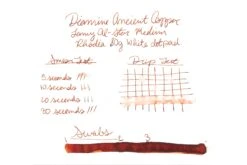 Diamine Ancient Copper
Lamy Al-Star Medium
Rhodia Dot Pad
Smear Test
Drip Test
5 seconds
10 seconds
20 seconds
30 seconds
Swabs
1
2
3